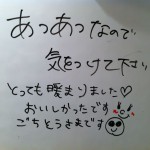 あつあつなので
気をつけて下さい
とっても暖まりました♡
おいしかったです
ごちとうさまです